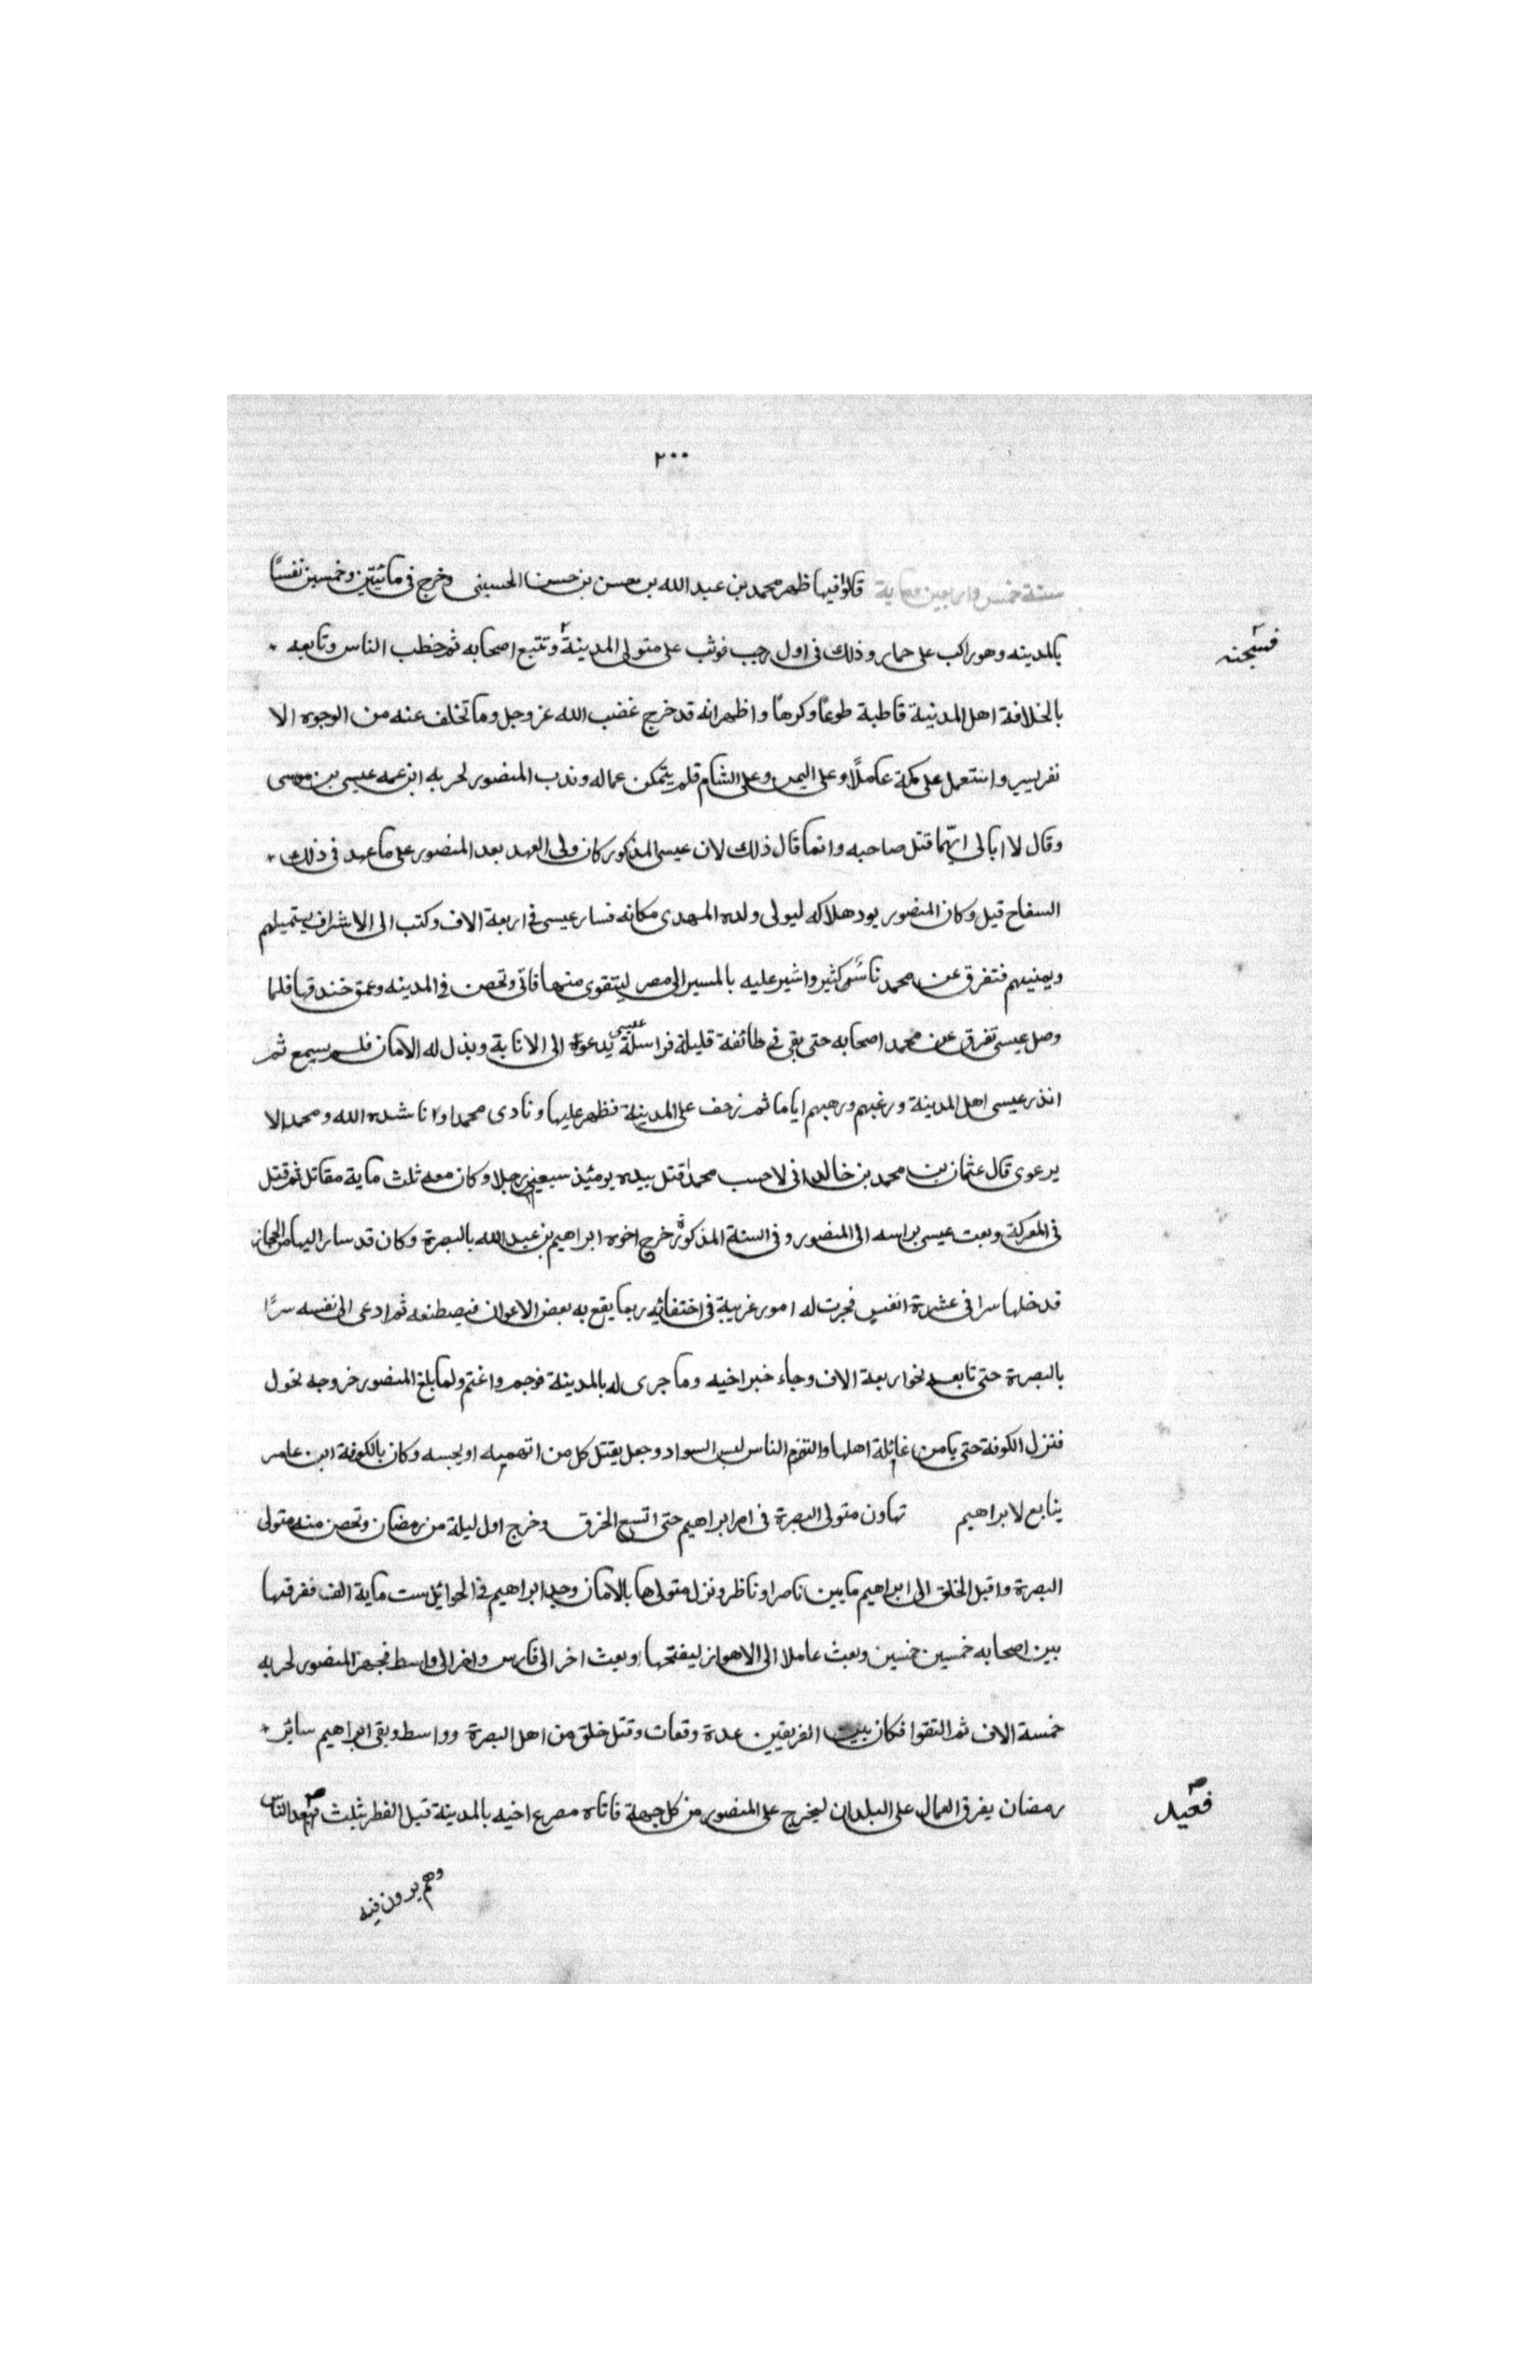 ٢٠٠
سنة خمس واربعين وماية قالوا فيها ظهر محمد بن عبد الله بن حسن بن حسن الحسينى وخرج فى مائيتين وخمسين نفسًا
بالمدينه وهو راكب على حمار وذلك فى اول رجب فوثب على متولى المدينة وتتبع اصحابه ثم خطب الناس وتابعه
فسجنه
بالخلافة اهل المدنية قاطبة طوعًا وكرهًا واظهر انه قد خرج غضب الله عز وجل وما تخلف عنه من الوجوه الا
نفر يسير واستعمل على مكة عاملًا وعلى اليمن وعلى الشام فلم يتمكن عماله وندب المنصور لحربه ابن عمه عيسى بن موسى
وقال لا ابالى ايّهما قتل صاحبه وانما قال ذلك لان عيسى المذكور كان ولى العهد بعد المنصور على ما عهد فى ذلك
السفاح قيل وكان المنصور يود هلاكه ليولى ولده المهدى مكانه فسار عيسى فى اربعة الاف وكتب الى الاشراف يستميلهم
ويمنيهم فتفرق عن محمد ناسٌ كثير واشير عليه بالمسير الى مصر ليتقوى منها فاتى وتحصن فى المدينه وعمق خندقها فلما
وصل عيسى تفرق عن محمد اصحابه حتى بقى فى طائفة قليلة فراسلة عيسى يدعوه الى الانابة وبذل له الامان فلم يسمع ثم
انذر عيسى اهل المدينة ورغبهم ورهبهم اياما ثم زحف على المدينة فظهر عليها ونادى محمدا وناشده الله ومحمد لا
يرعوى قال عثمان بن محمد بن خالد انى لاحسب محمدا قتل بيده يومئذ سبعين رجلا وكان معه ثلث ماية مقاتل ثم قتل
فى المعركة وبعث عيسى براسه الى المنصور وفى السنة المذكورة خرج اخوه ابراهيم بن عبد الله بالبصرة وكان قد سار اليها من الحجاز
قدخلها سرا فى عشرة انفس فجرت له امور غريبة فى اختفائه ربما يقع به بعض الاعوان فيصطنعه ثم ادعى الى نفسه سرًا
بالبصرة حتى تابعه نحو اربعة الاف وجاء خبر اخيه وما جرى له بالمدينة فوجم واغتم ولما بلغ المنصور خروجه تحول
فنزل الكوفة حتى يامن غائلة اهلها والتزم الناس لبس السواد وجعل يقتل كل من اتهمه او يحبسه وكان بالكوفة ابن عامر
ينابع لابراهيم تهاون متولى البصرة فى امر ابراهيم حتى اتسع الخرق وخرج اول ليلة من رمضان وتحصن منه متولى
البصرة واقبل الخلق الى ابراهيم ما بين ناصر او ناظر ونزل متولها بالامان وجد ابراهيم فى الحواثل ست ماية الف ففرقها
بين اصحابه خمسين خمسين وبعث عاملا الى الاهواز ليفتحها وبعث اخر الى فارس واخر الى واسط فجهز المنصور لحربه
خمسة الاف ثم التقوا فكان بين الفريقين عدة وقعات وقتل خلق من اهل البصرة وواسط وبقى ابراهيم سائر
رمضان يفرق العمال على البلدان ليخرج على المنصور من كل جهة فاتاه مصرع اخيه بالمدينة قبل الفطر بثلث فعيد الناس
فعيد
وهم يرون فيه